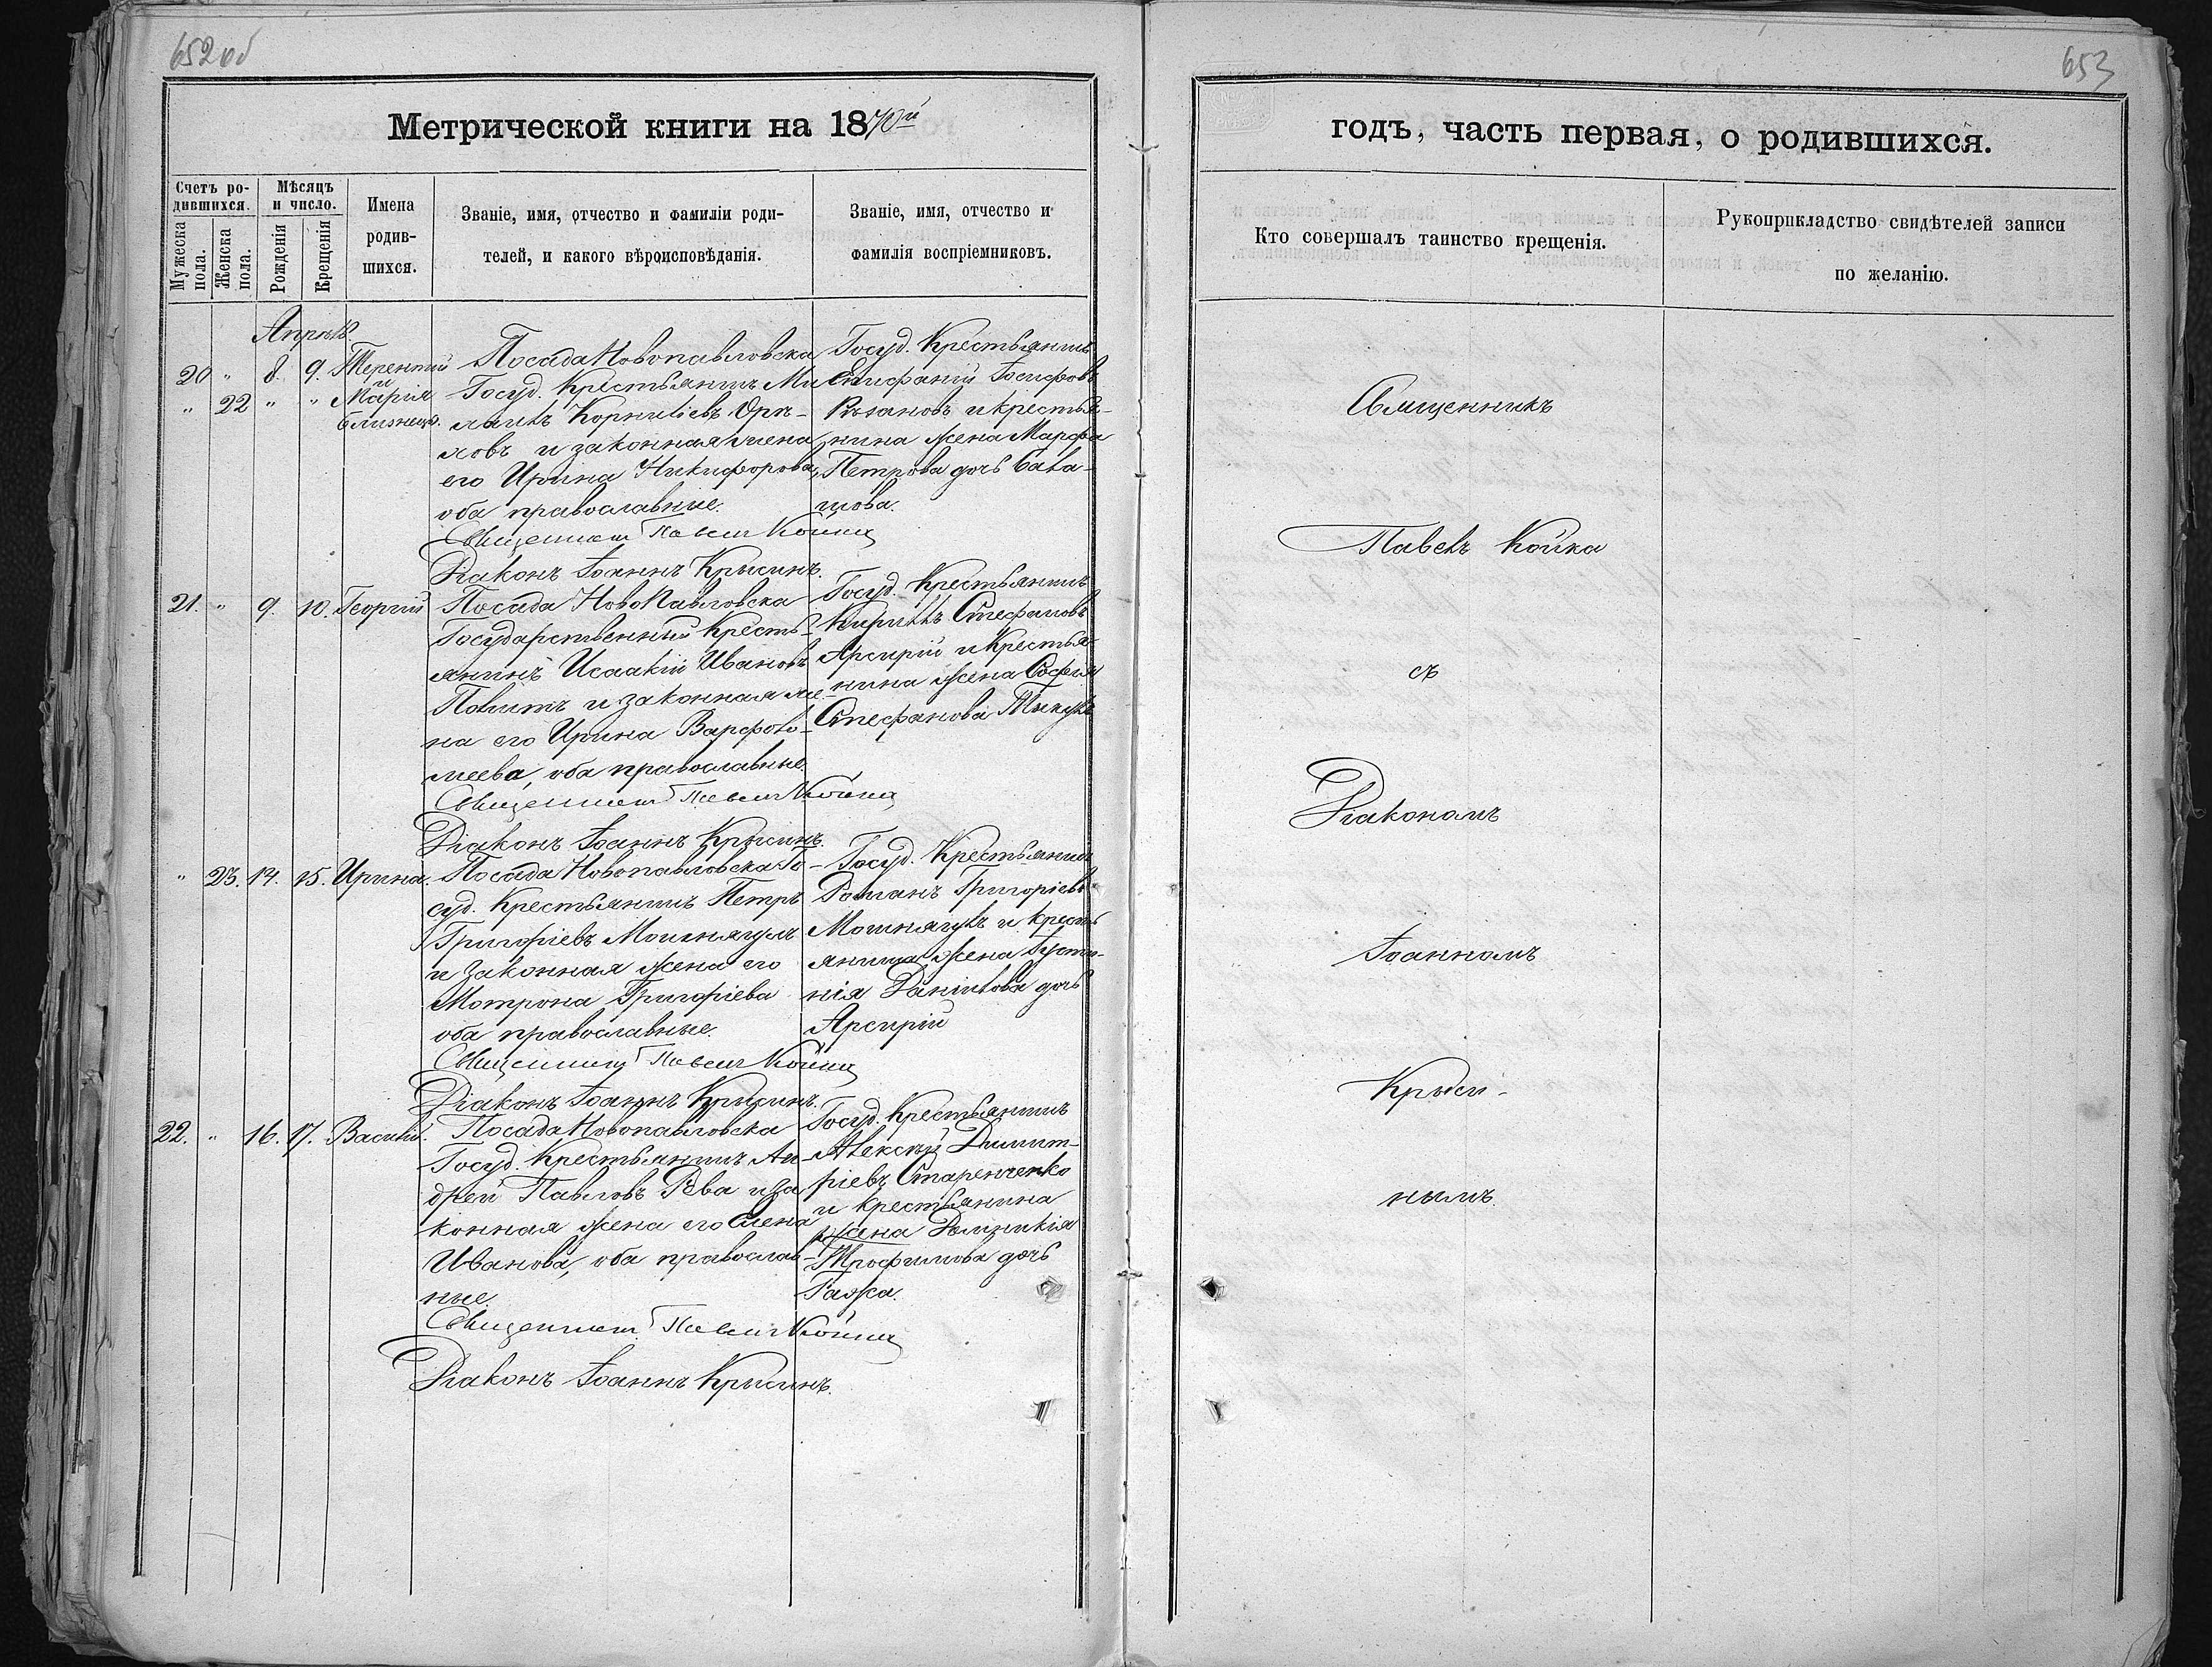 652 об
653
Метрической книги на 1870й
годъ, часть первая, о родившихся.
Счетъ родившихся.
Мужеска пола.
Женска пола.
Мѣсяцъ и число.
Рожденія
Крещенія
Имена родившихся.
Званіе, имя, отчество и фамиліи роди-
телей, и какого вѣроисповѣданія.
Званіе, имя, отчество и
фамилія воспріемниковъ.
Кто совершалъ таинство крещенія.
Рукоприкладство свидѣтелей записи
по желанію.
Апрѣль
20 " 8. 9. Терентий
и
" 22 " " Марія
близнецы.
Посада Новопавловска
Госуд. Крестьянинъ Ми-
хаилъ Корниліевъ Орѣ-
ховъ и законная жена
его Ирина Никифорова,
оба православные.
Священникъ Павелъ Койка
Діаконъ Іоаннъ Крысинъ.
Госуд. Крестьянинъ
Епифаній Іосифовъ
Рѣзановъ и крестья-
нина жена Марфа
Петрова дочь
Посада НовоПавловска
21. " 9. 10. Георгій
Государственный Кресть-
янинъ Исаакій Ивановъ
и законная же-
на его Ирина Варфоло-
меева, оба православные.
Священникъ Павелъ Койка
Діаконъ Іоаннъ Крысинъ.
Госуд. Крестьянинъ
Кириллъ Стефановъ
Арсирій и Крестья-
нина жена Софія
Стефанова
" 23. 14. 15. Ирина.
Посада Новопавловска Го-
суд. Крестьянинъ Петръ
Григоріевъ Мошнягулъ
и законная жена его
Мотрона Григоріева
оба православные.
Священникъ Павелъ Койка
Діаконъ Іоаннъ Крысинъ.
Госуд. Крестьянинъ
Романъ Григоріевъ
Мошнягулъ и кресть-
янина жена Іусти-
нія Даніилова дочь
Арсирій
22. " 16. 17. Василій.
Посада Новопавловска
Госуд. Крестьянинъ Ан-
дрей Павловъ Рева и за-
конная жена его Елена
Иванова, оба православ-
ные.
Священникъ Павелъ Койка
Діаконъ Іоаннъ Крысинъ.
Госуд. Крестьянинъ
Алексѣй Димит-
ріевъ Старенченко
и крестьянина
жена Домникія
Трофимова дочь
Гажа.
Священникъ
Павелъ Койка
съ
Діакономъ
Іоанномъ
Крыси-
нымъ.